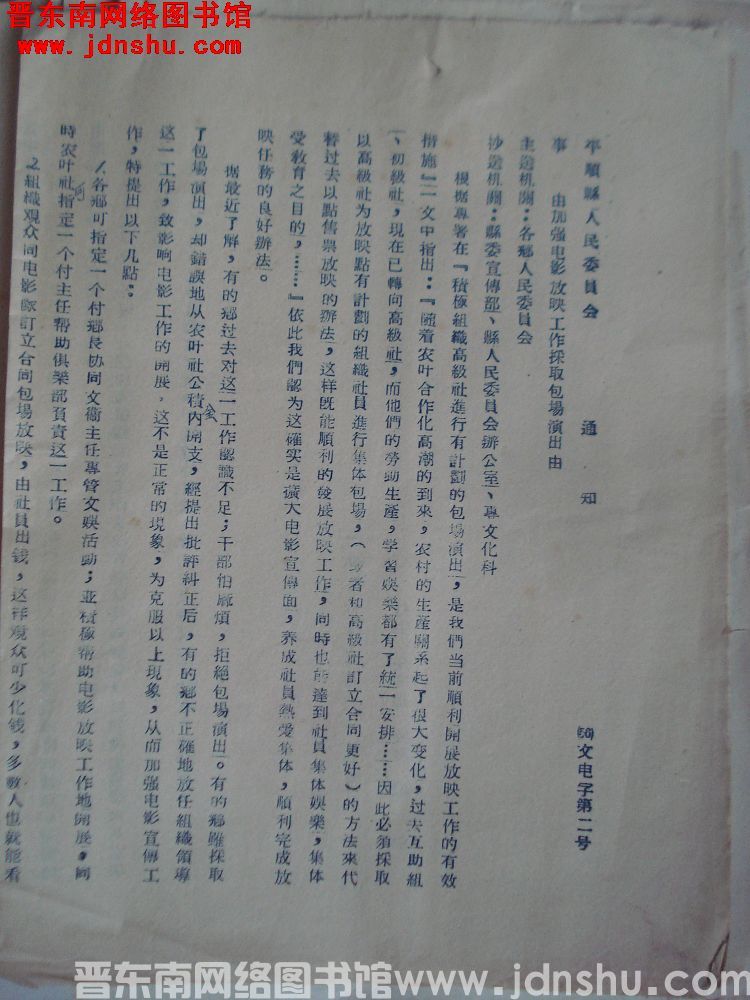 晋东南网络图书馆
www.jdnshu.com
平順縣人民委員会 通知
(56)文电字第二号
事 由加强电影放映工作採取包場演出由
主送机關：各鄉人民委員会
抄送机關：縣委宣傳部、縣人民委員会辦公室、專文化科
根据專署在『積極組織高級社進行有計劃的包場演出，是我們当前順利開展放映工作的有效
措施』一文中指出：『随着农叶合作化高潮的到來，农村的生產關系起了很大变化，过去互助組
、初級社，現在已轉向高級社，而他們的勞動生產，学習娛樂都有了統一安排……因此必須採取
以高級社为放映點有計劃的組織社員進行集体包場，（或者和高級社訂立合同更好）的方法來代
替过去以點售票放映的辦法，这样既能順利的發展放映工作，同時也能達到社員集体娛樂，集体
受教育之目的，……』依此我們認为这確实是擴大电影宣傳面，养成社員热愛集体，順利完成放
映任務的良好辦法。
据最近了解，有的鄉过去对这一工作認識不足；干部怕麻煩，拒絕包場演出。有的鄉雖採取
了包場演出，却錯誤地从农叶社公積金內開支，經提出批評糾正后，有的鄉不正確地放任組織領導
这一工作，致影响电影工作的開展，这不是正常的現象，为克服以上現象，从而加强电影宣傳工
作，特提出以下几點：
1.各鄉可指定一个付鄉長协同文衞主任專管文娛活動；並積極帮助电影放映工作地開展，同
時农叶社可指定一个付主任帮助俱樂部負責这一工作。
2.組織观众同电影隊訂立合同包場放映，由社員出钱，这样观众可少化钱，多数人也就能看
晋东南网络图书馆www.jdnshu.com